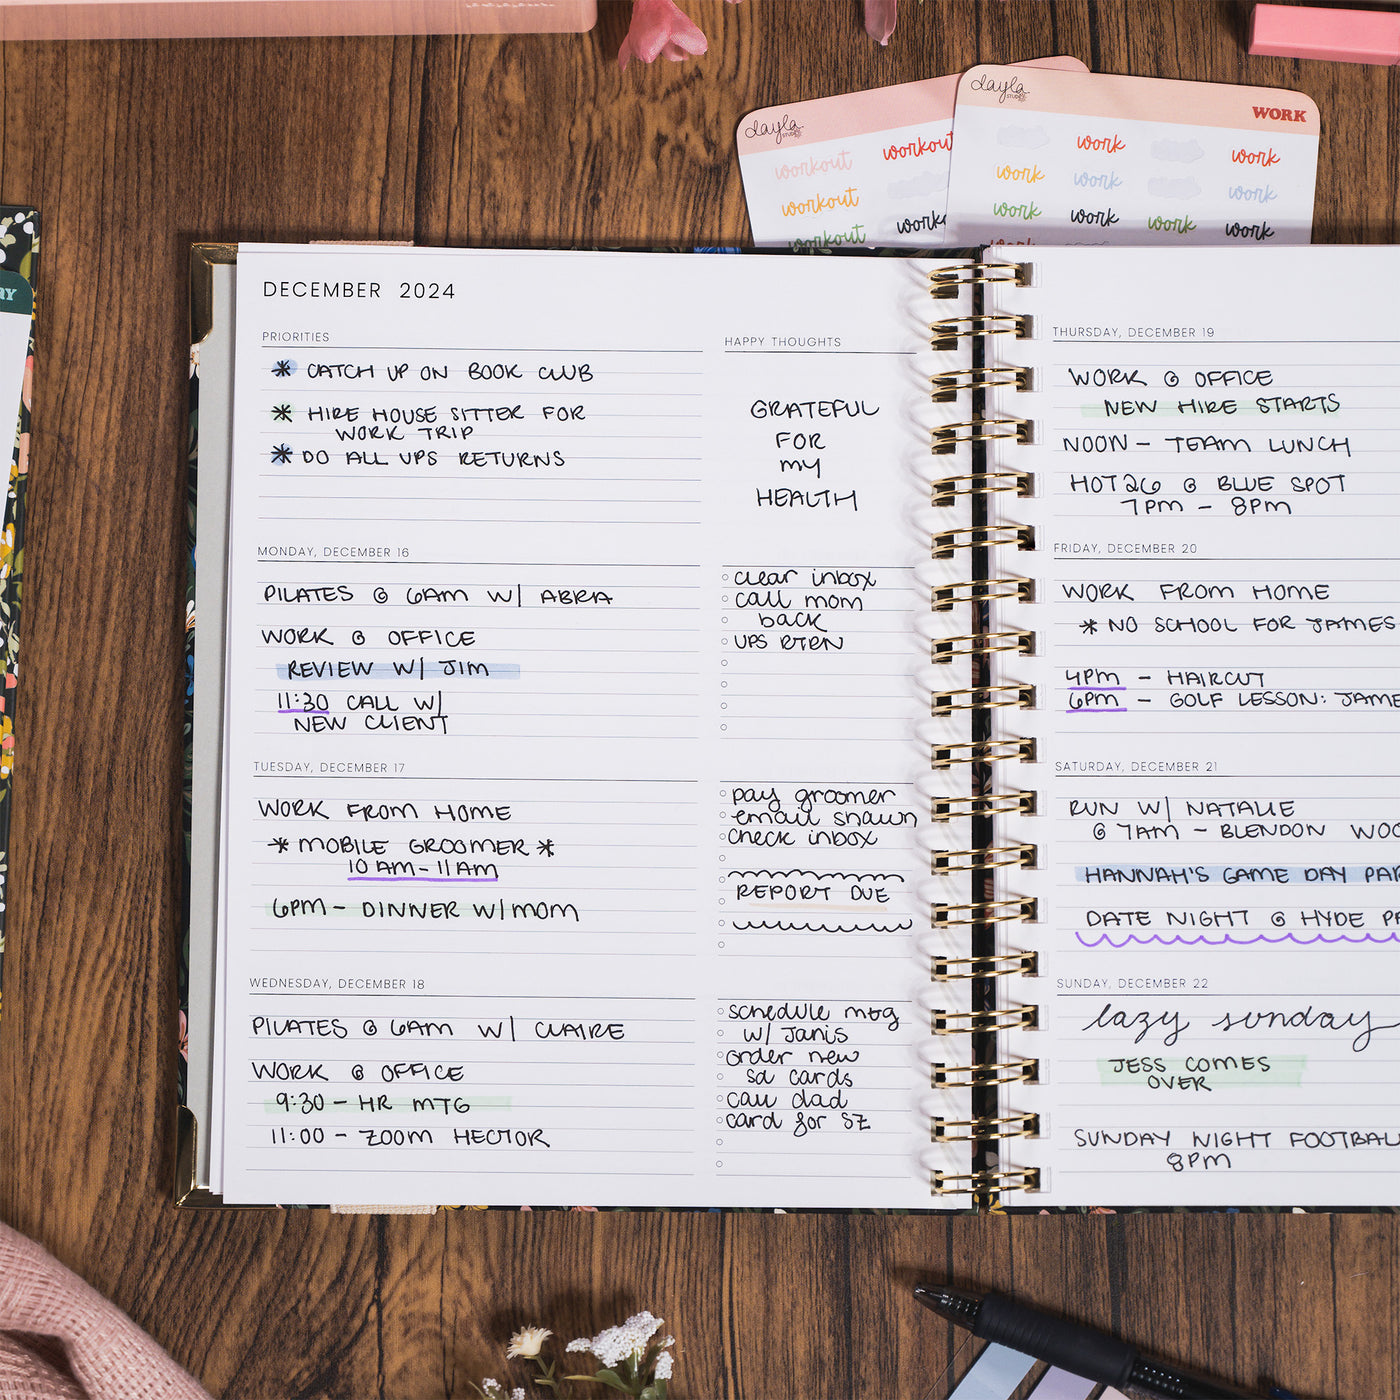 dayla
STUDIO
workout
workout
workout
workout
work
dayla
STUDIO
WORK
work
work
work
work
work
work
work
work
work
DECEMBER 2024
PRIORITIES
* CATCH UP ON BOOK CLUB
* HIRE HOUSE SITTER FOR
WORK TRIP
* DO ALL UPS RETURNS
HAPPY THOUGHTS
GRATEFUL
FOR
my
HEALTH
MONDAY, DECEMBER 16
PILATES @ 6AM W/ ABRA
WORK @ OFFICE
REVIEW W/ JIM
11:30 CALL W/
NEW CLIENT
clear inbox
call mom
back
UPS RTRN
TUESDAY, DECEMBER 17
WORK FROM HOME
* MOBILE GROOMER *
10 AM - 11 AM
6PM - DINNER W/ MOM
pay groomer
email shawn
check inbox
REPORT DUE
WEDNESDAY, DECEMBER 18
PILATES @ 6AM W/ CLAIRE
WORK @ OFFICE
9:30 - HR MTG
11:00 - ZOOM HECTOR
schedule mtg
w/ Janis
order new
sd cards
call dad
card for SZ
THURSDAY, DECEMBER 19
WORK @ OFFICE
NEW HIRE STARTS
NOON - TEAM LUNCH
HOT 26 @ BLUE SPOT
7PM - 8PM
FRIDAY, DECEMBER 20
WORK FROM HOME
* NO SCHOOL FOR JAMES
4PM - HAIRCUT
6PM - GOLF LESSON: JAME
SATURDAY, DECEMBER 21
RUN W/ NATALIE
@ 7AM - BLENDON WOO
HANNAH'S GAME DAY PAR
DATE NIGHT @ HYDE PA
SUNDAY, DECEMBER 22
lazy sunday
JESS COMES
OVER
SUNDAY NIGHT FOOTBAL
8PM